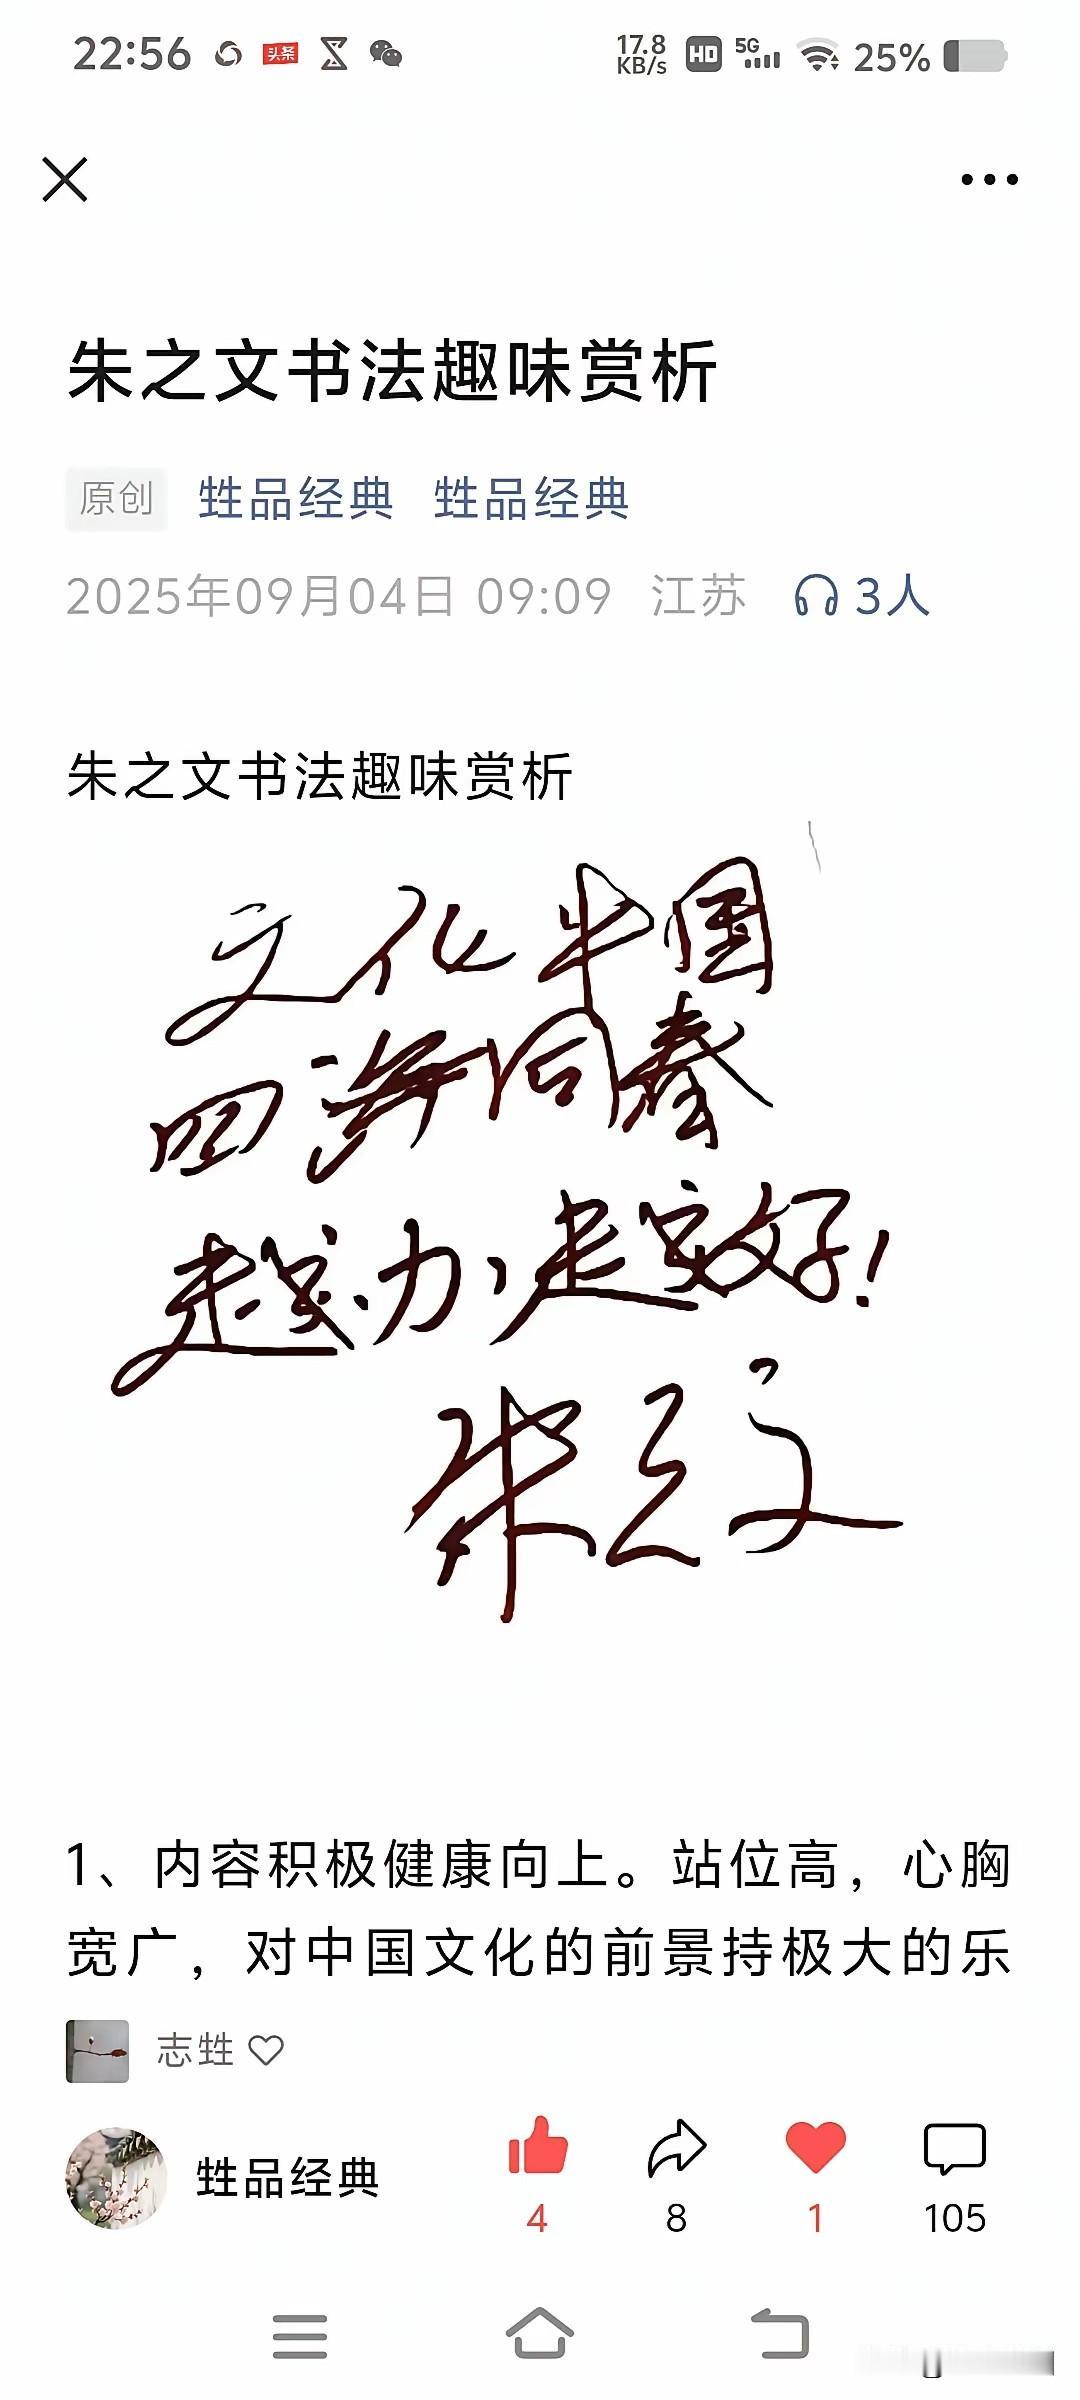 22:56 头条 17.8 KB/s HD 5G 25%
朱之文书法趣味赏析
原创 甡品经典 甡品经典
2025年09月04日 09:09 江苏 3人
朱之文书法趣味赏析
文化中国
四海同春
越办越好!
朱之文
1、内容积极健康向上。站位高,心胸
宽广,对中国文化的前景持极大的乐
志甡
甡品经典 4 8 1 105